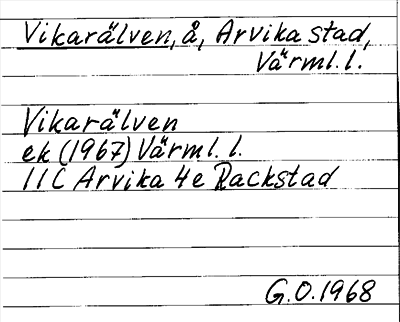 Vikarälven, å, Arvika stad,
Värml. l.
Vikarälven
ek (1967) Värml. l.
11C Arvika 4e Rackstad
G.O. 1968